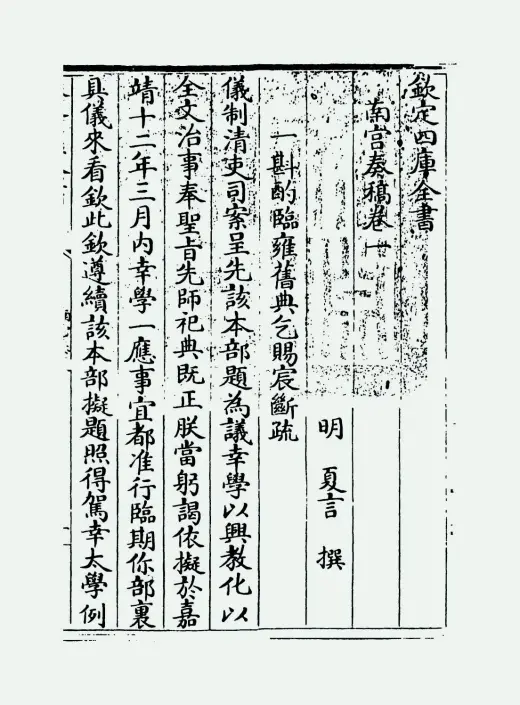 欽定四庫全書
南宮奏稿卷一
明 夏言 撰
一斟酌臨雍舊典乞賜宸斷疏
儀制清吏司案呈先該本部題為議幸學以興教化以
全文治事奉聖旨先師祀典既正朕當躬謁依擬於嘉
靖十二年三月內幸學一應事宜都准行臨期你部裏
具儀來看欽此欽遵續該本部擬題照得駕幸太學例